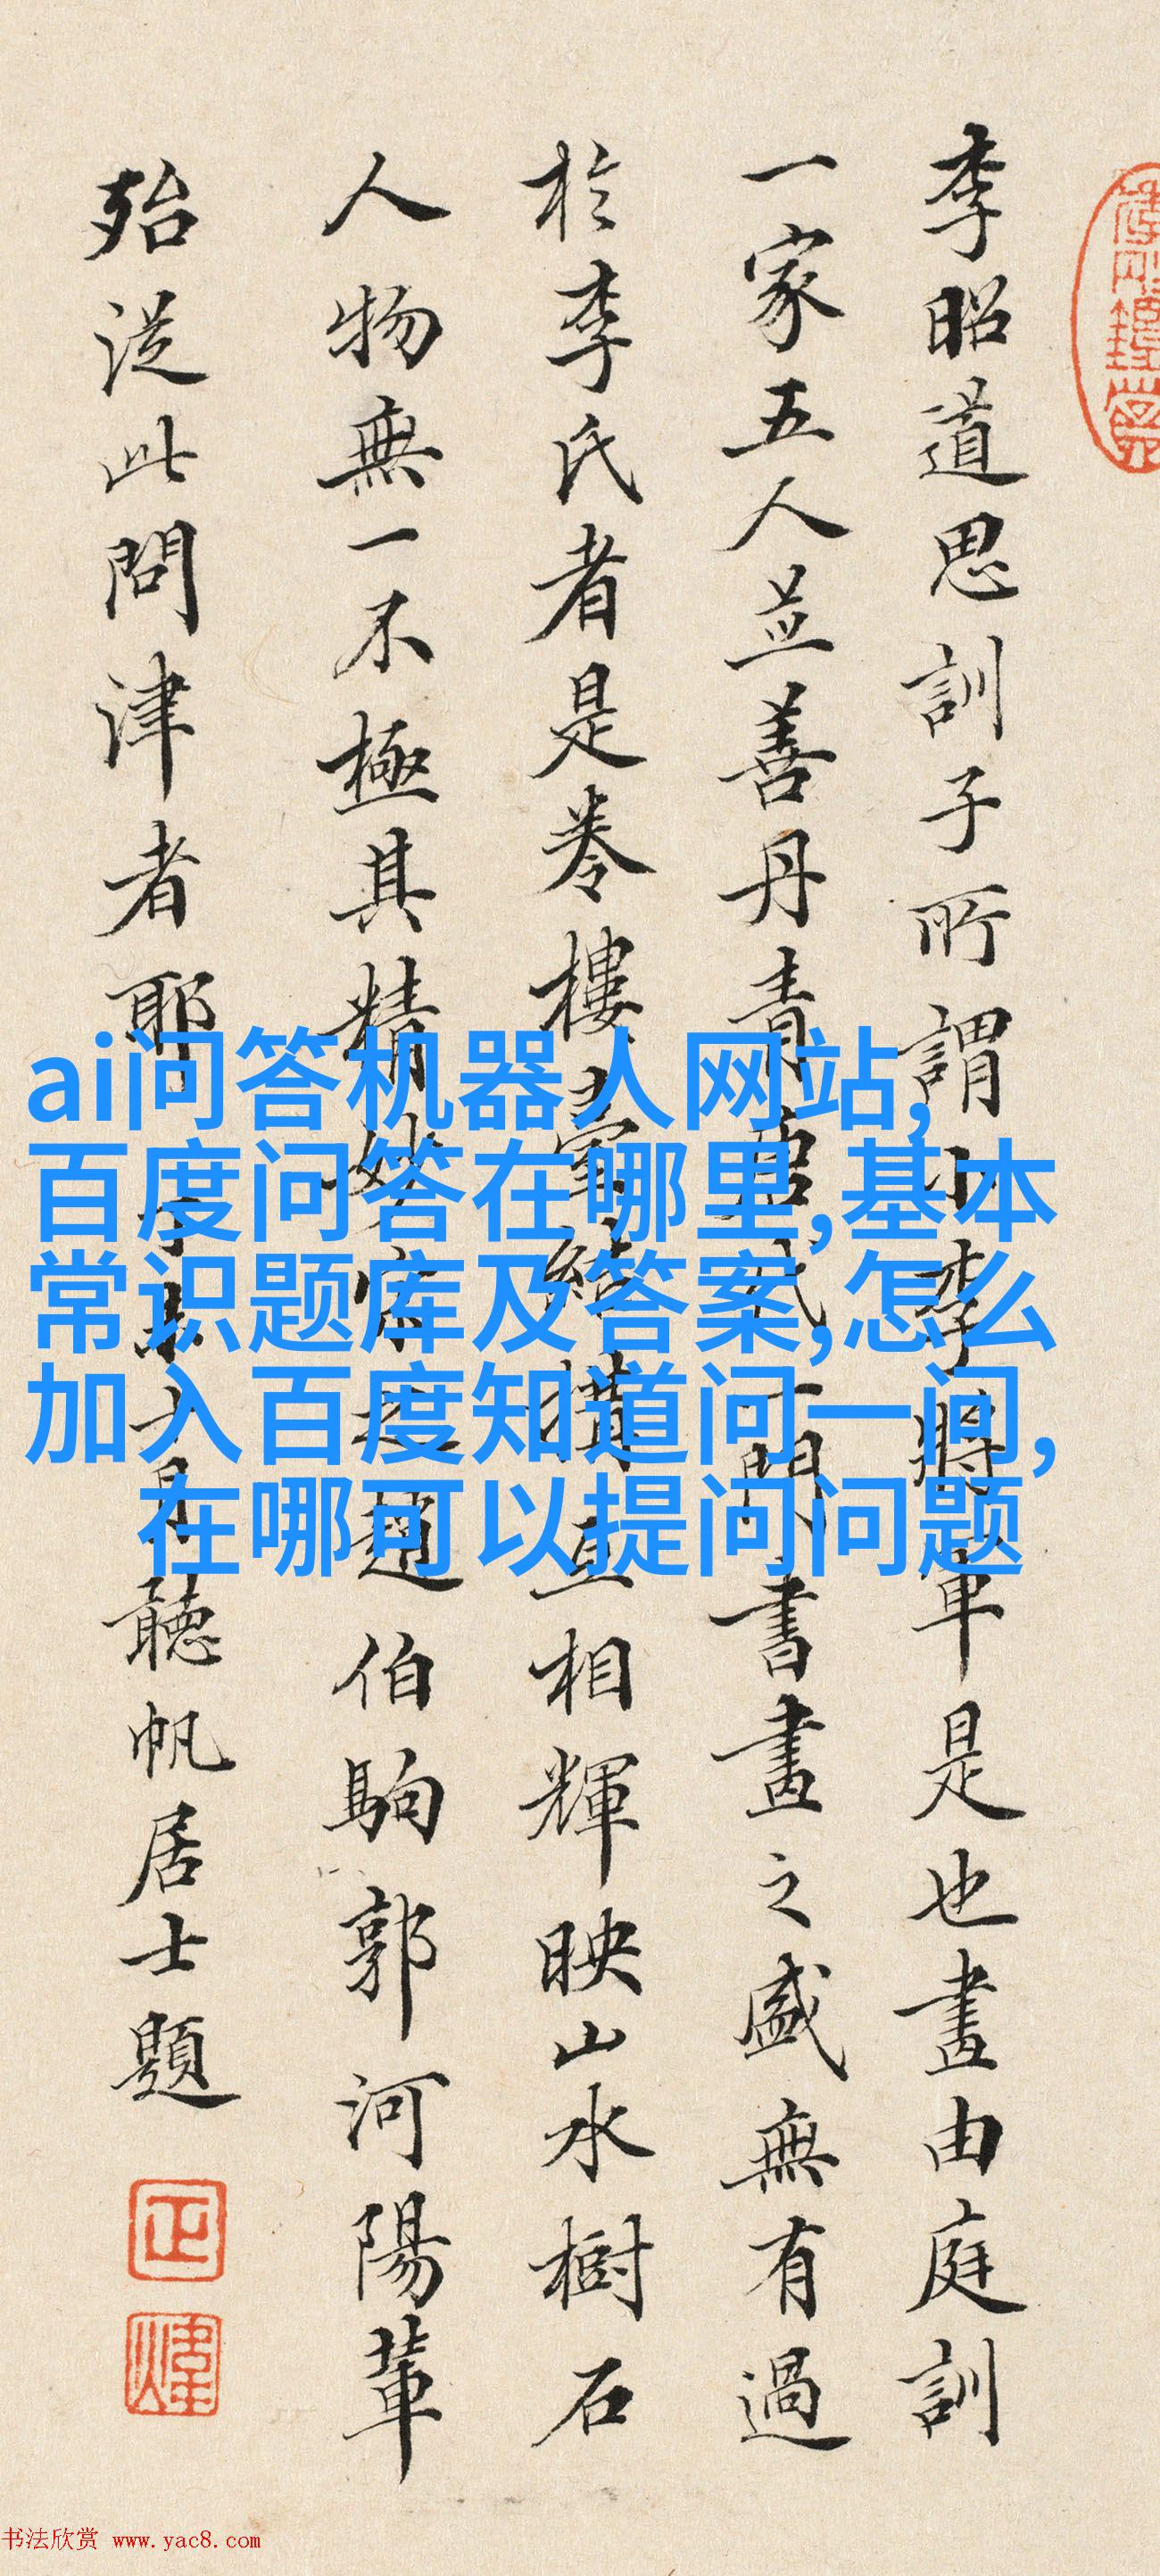 李昭道思訓子所謂小李將軍是也畫由庭訓
一家五人並善丹青唐代一門書畫之盛無有過
於李氏者是卷樓臺結構互相輝映山水樹石
人物無一不極其精妙宋之趙伯駒郭河陽輩
殆從此問津者耶
聽帆居士題
ai问答机器人网站,
百度问答在哪里,基本
常识题库及答案,怎么
加入百度知道问一问,
在哪可以提问问题
书法欣赏 www.yac8.com